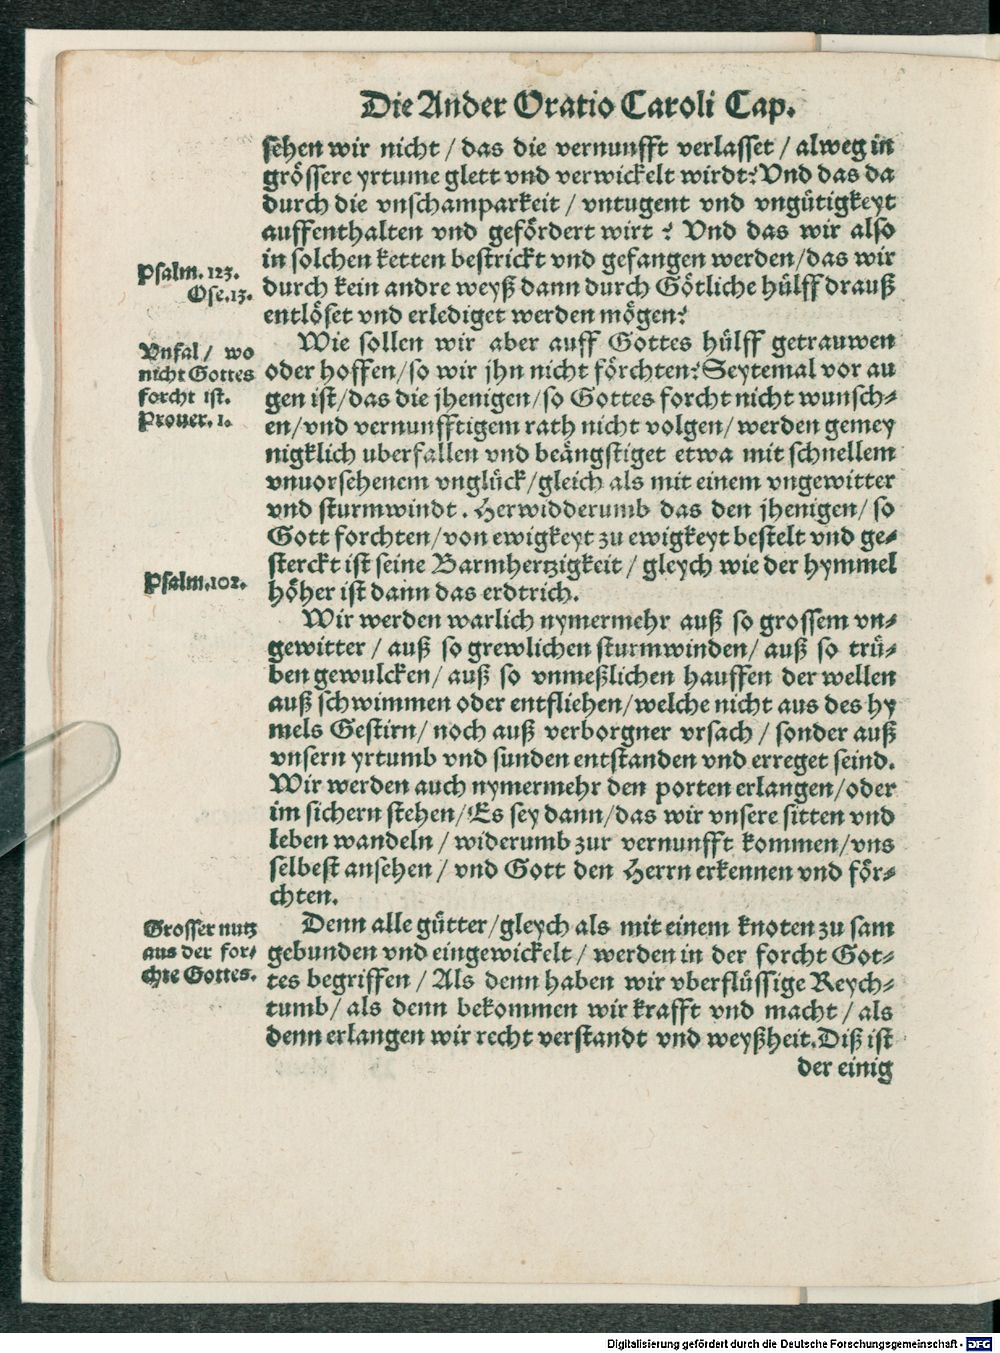 Die Ander Oratio Caroli Cap.
sehen wir nicht / das die vernunfft verlasset / alweg in
grössere yrtume glett vnd verwickelt wirdt? Vnd das da
durch die vnschamparkeit / vntugent vnd vngütigkeyt
auffenthalten vnd gefördert wirt? Vnd das wir also
in solchen ketten bestrickt vnd gefangen werden / das wir
durch kein andre weyß dann durch Götliche hülff drauß
entlöset vnd erlediget werden mögen?
Psalm. 123.
Ose. 13.
Wie sollen wir aber auff Gottes hülff getrauwen
oder hoffen / so wir jhn nicht förchten? Seytemal vor au
gen ist / das die jhenigen / so Gottes forcht nicht wunsch-
en / vnd vernunfftigem rath nicht volgen / werden gemey
nigklich uberfallen vnd beängstiget etwa mit schnellem
vnuorsehenem vnglück / gleich als mit einem vngewitter
vnd sturmwindt. Herwidderumb das den jhenigen / so
Gott forchten / von ewigkeyt zu ewigkeyt bestelt vnd ge-
sterckt ist seine Barmhertzigkeit / gleych wie der hymmel
höher ist dann das erdtrich.
Vnfal / wo
nicht Gottes
forcht ist.
Prouer. 1.
Psalm. 102.
Wir werden warlich nymermehr auß so grossem vn-
gewitter / auß so grewlichen sturmwinden / auß so trü-
ben gewulcken / auß so vnmeßlichen hauffen der wellen
auß schwimmen oder entfliehen / welche nicht aus des hy
mels Gestirn / noch auß verborgner vrsach / sonder auß
vnsern yrtumb vnd sunden entstanden vnd erreget seind.
Wir werden auch nymermehr den porten erlangen / oder
im sichern stehen / Es sey dann / das wir vnsere sitten vnd
leben wandeln / widerumb zur vernunfft kommen / vns
selbest ansehen / vnd Gott den Herrn erkennen vnd för-
chten.
Denn alle gütter / gleych als mit einem knoten zu sam
gebunden vnd eingewickelt / werden in der forcht Got-
tes begriffen / Als denn haben wir vberflüssige Reych-
tumb / als denn bekommen wir krafft vnd macht / als
denn erlangen wir recht verstandt vnd weyßheit. Diß ist
der einig
Grosser nutz
aus der for-
chte Gottes.
Digitalisierung gefördert durch die Deutsche Forschungsgemeinschaft - DFG